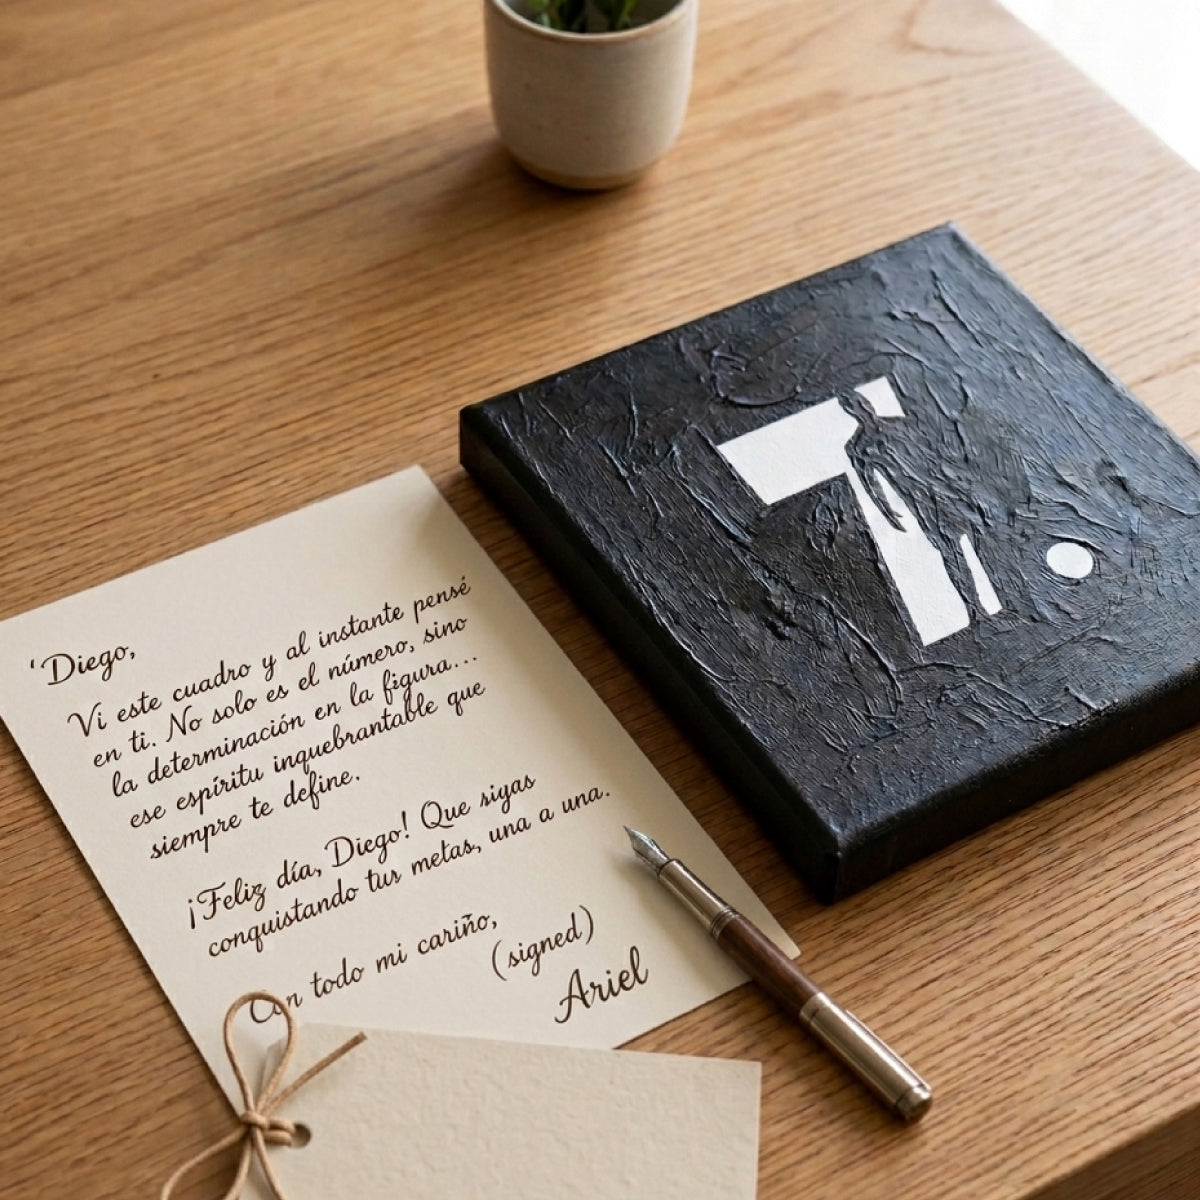 ‘Diego,
Vi este cuadro y al instante pensé
en ti. No solo es el número, sino
la determinación en la figura...
ese espíritu inquebrantable que
siempre te define.
¡Feliz día, Diego! Que sigas
conquistando tus metas, una a una.
Con todo mi cariño,
(signed)
Ariel